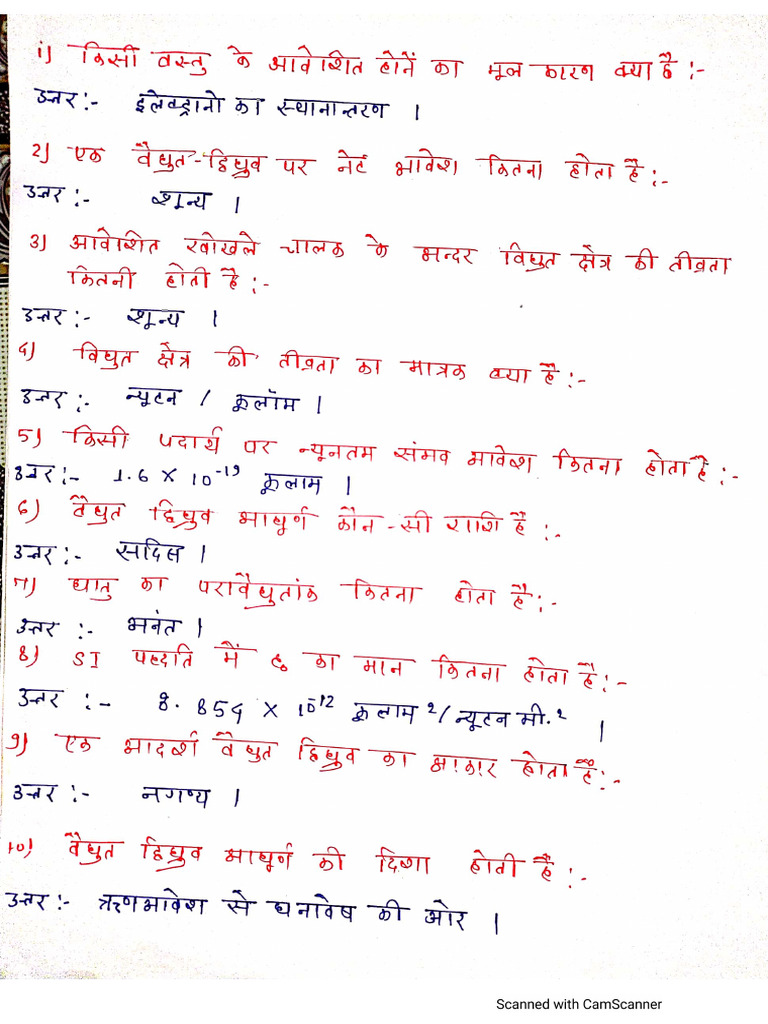 1) किसी वस्तु के आवेशित होनें का मूल कारण क्या है :-
उत्तर :- इलेक्ट्रानो का स्थानान्तरण ।
2) एक वैद्युत-द्विध्रुव पर नेट आवेश कितना होता है :-
उत्तर :- शून्य ।
3) आवेशित खोखले चालक के अन्दर विद्युत क्षेत्र की तीव्रता
कितनी होती है :-
उत्तर :- शून्य ।
4) विद्युत क्षेत्र की तीव्रता का मात्रक क्या है :-
उत्तर :- न्यूटन / कूलॉम ।
5) किसी पदार्थ पर न्यूनतम संभव आवेश कितना होता है :-
उत्तर :- 1.6 × 10⁻¹⁹ कूलाम ।
6) वैद्युत द्विध्रुव आघूर्ण कौन-सी राशि है :-
उत्तर :- सदिस ।
7) धातु का परावैद्युतांक कितना होता है :-
उत्तर :- अनंत ।
8) SI पद्धति में ६० का मान कितना होता है :-
उत्तर :- 8.854 × 10⁻¹² कूलाम ²/ न्यूटन मी.² ।
9) एक आदर्श वैद्युत द्विध्रुव का आकार होता हैं :-
उत्तर :- नगण्य ।
10) वैद्युत द्विध्रुव आघूर्ण की दिशा होती है :-
उत्तर :- ऋणआवेश से धनावेष की ओर ।
Scanned with CamScanner